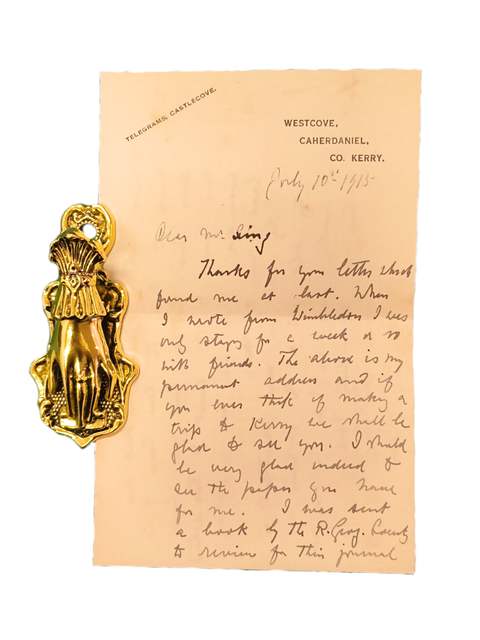 TELEGRAMS, CASTLECOVE.
WESTCOVE,
CAHERDANIEL,
CO. KERRY.
July 10th 1915
Dear Mr King
Thanks for your letter which
found me at last. When
I wrote from Wimbledon I was
only staying for a week or so
with friends. The above is my
permanent address and if
you ever think of making a
trip to Kerry we shall be
glad to see you. I should
be very glad indeed to
see the paper you have
for me. I was sent
a book by the R. Geog. Society
to review for their journal